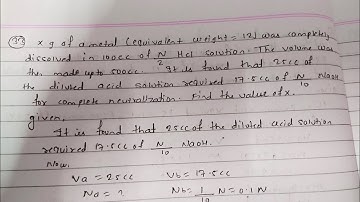 (33) x g of a metal (equivalent weight = 12) was completely
dissolved in 100cc of N/2 HCl solution. The volume was
then made upto 500cc. It is found that 25cc of
the diluted acid solution required 17.5cc of N/10 NaOH
for complete neutralization. Find the value of x.
given,
It is found that 25cc of the diluted acid solution
required 17.5cc of N/10 NaOH.
Now,
Va = 25cc Vb = 17.5cc
Na = ? Nb = 1/10 N = 0.1 N